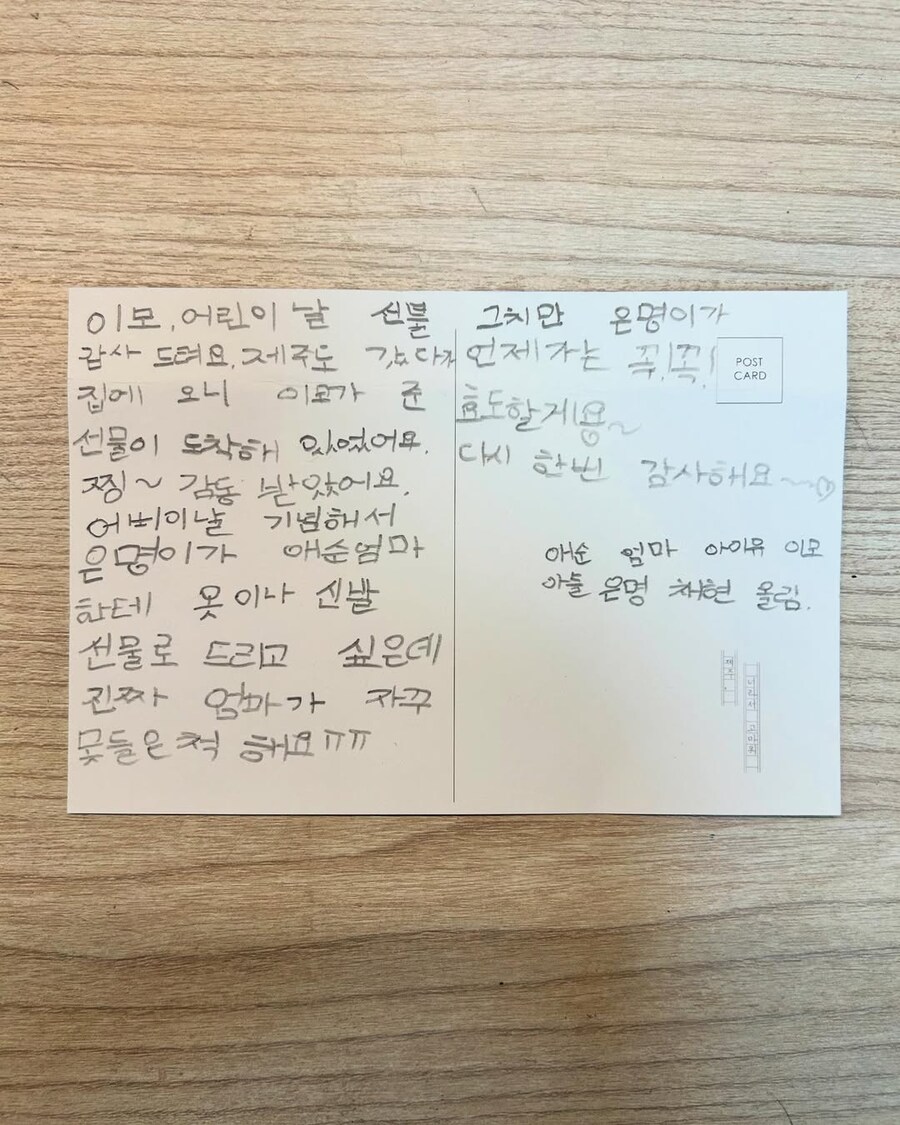 이모, 어린이 날 선물
감사 드려요. 제주도 갔다가
집에 오니 이모가 준
선물이 도착해 있었어요.
찡~ 감동 받았어요.
어버이날 기념해서
은명이가 애순엄마
한테 옷이나 신발
선물로 드리고 싶은데
진짜 엄마가 자꾸
못들은척 해요ㅠㅠ
그치만 은명이가
언제가는 꼭!꼭!
효도할게용~
다시 한번 감사해요~♡
애순 엄마 아이유 이모
아들 은명 채현 올림.
POST
CARD
너라서 고마워